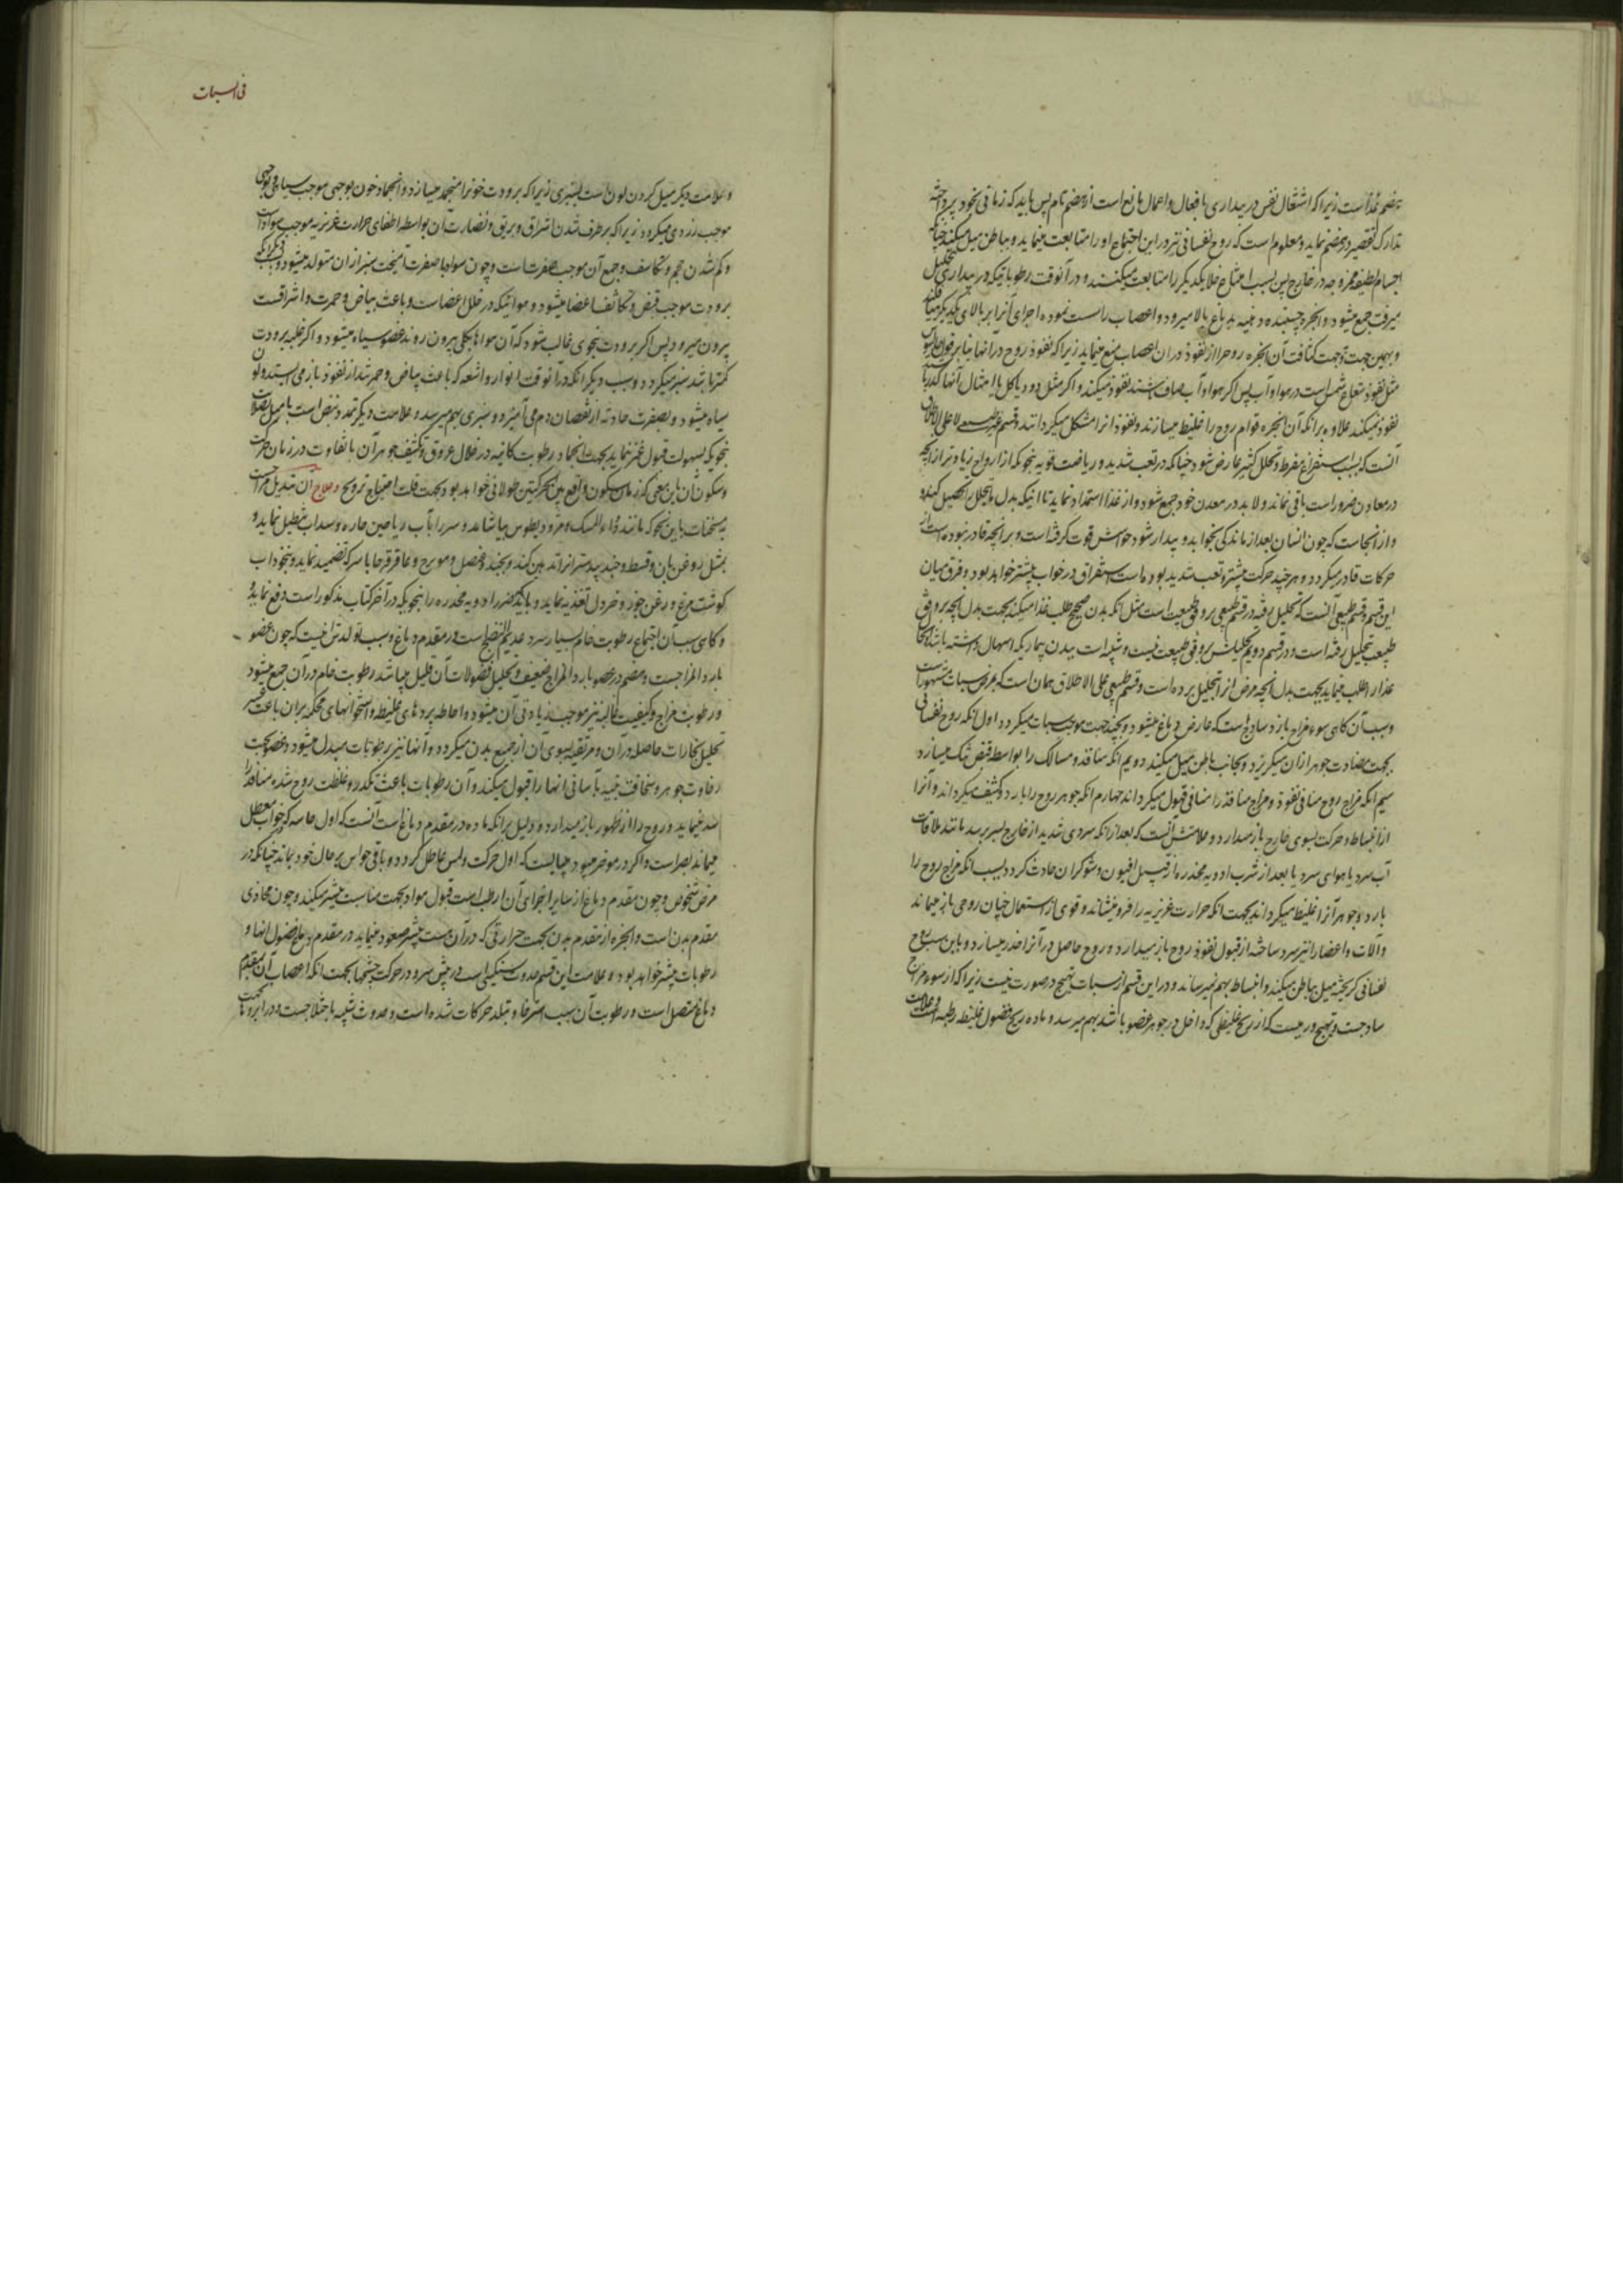 هضم غذاست زیرا که اشتغال نفس در بیداری بافعال و اعمال مانع است از هضم تام پس باید که زمانی بخود پرداخته
تدارک تقصیر در هضم نماید و معلوم است که روح نفسانی نیز در این اجتماع او را متابعت مینماید و بباطن میل میکند چنانکه
اجسام لطیفه ممزوجه در خارج پس بسبب امتناع خلا یکدیگر را متابعت میکنند و در آنوقت رطوباتیکه در بیداری بتحلیل
میرفت جمع میشود و ابخره بدماغ بالا میرود و اعصاب را سست نموده اجزای آنرا بر بالای یکدیگر
و بهمین جهت و جهت کثافت آن ابخره روح را از نفوذ در آن اعصاب منع مینماید زیرا که نفوذ روح در آنها بنا بر قول
مثل نفوذ شعاع شمس است در هوا و آب پس اگر هوا و آب صاف باشند نفوذ میکند و اگر مثل دود یا گل یا امثال آنها
نفوذ نمیکند علاوه برانکه آن ابخره قوام روح را غلیظ میسازند و نفوذ آنرا مشکل میگردانند و قسم غیر طبیعی لا علی الاطلاق
آنست که بسبب استفراغ مفرط و تحلل کثیر عارض شود چنانکه در تعب شدید و ریاضت قویه بنحویکه از ارواح زیاده تر از آنچه
در معادن ضرور است باقی نماند و لابد در معدن خود جمع شود و از غذا استمداد نماید تا اینکه بدل ما یتحلل تحصیل کند
و از انجاست که چون انسان بعد از ماندگی بخوابد و بیدار شود حواسش قوت گرفته است و بر آنچه قادر نبوده است از
حرکات قادر میگردد و هر چند حرکت بیشتر و تعب شدید بوده است استغراق در خواب بیشتر خواهد بود و فرق میان
این قسم و قسم طبیعی آنست که تحلیل رفته در قسم طبیعی بر وفق طبیعت است مثل انکه بدن صحیح طلب غذا میکند بجهت بدل آنچه بر وفق
طبیعت تحلیل رفته است و در قسم دویم تحلیلش بر وفق طبیعت نیست و شبیه است ببدن بیماریکه اسهال داشته باشد
غذا را طلب نماید بجهت بدل آنچه مرض از او بتحلیل برده است و قسم طبیعی علی الاطلاق همان است که مرض سبات
و سبب آن گاهی سوء مزاج بارد ساذج است که عارض دماغ میشود و بچند جهت موجب سبات میگردد اول انکه روح نفسانی
بجهت مضادت جوهر ازان میگریزد و بجانب باطن میل میکند دویم انکه منافذ و مسالک را بواسطه قبض تنگ میسازد
سیم انکه مزاج روح منافی نفوذ و مزاج منافذ را منافی قبول میگرداند چهارم انکه جوهر روح را بارد و کثیف میگرداند و آنرا
از انبساط و حرکت بسوی خارج باز میدارد و علامتش آنست که بعد از انکه سردی شدید از خارج بسر برسد مانند ملاقات
آب سرد یا هوای سرد یا بعد از شرب ادویه مخدره از قبیل افیون و شوکران حادث گردد بسبب انکه مزاج روح را
بارد و جوهر آنرا غلیظ میگرداند بجهت انکه حرارت غریزیه را فرو مینشاند و قوی از استعمال چنان روحی باز میماند
و آلات و اعضا را نیز سرد ساخته از قبول نفوذ روح باز میدارد و روح حاصل در آنرا خدر میسازد و باین سبب روح
نفسانی گریخته میل بباطن میکند و انبساط بهم نمیرساند و در این قسم از سبات تهبج در صورت نیست زیرا که از سوء مزاج
ساذجست و تهبج ورمیست که از ریح غلیظی که داخل در جوهر عضو باشد بهم میرسد و ماده ریح فضول غلیظه رطبه است
فی السبات
و علامت دیگر میل کردن لون است بسبزی زیرا که برودت خون را منجمد میسازد و انجماد خون بوجهی موجب سیاهی و بوجهی
موجب زردی میگردد زیرا که برطرف شدن اشراق و بریق و نضارت آن بواسطه اطفای حرارت غریزیه موجب سواد است
و کم شدن حجم و تکاثف و جمع آن موجب صفرت است و چون سواد با صفرت آمیخت سبز ازان متولد میشود و
برودت موجب قبض و تکاثف اعضا میشود و هوائیکه در خلل اعضاست و باعث بیاض و حمرت و اشراقست
بیرون میرود پس اگر برودت بنحوی غالب شود که آن هواها بکلی بیرون روند عضو سیاه میشود و اگر غلبه برودت
کمتر باشد سبز میگردد و سبب دیگر انکه در آنوقت انوار و اشعه که باعث بیاض و حمرتند از نفوذ باز می ایستند و لون
سیاه میشود و بصفرت حادثه از نقصان دم می آمیزد و سبزی بهم میرسد و علامت دیگر تمدد نبض است با میل بصلابت
بنحویکه بسهولت قبول غمز ننماید بجهت انجماد رطوبت کائنه در خلال عروق و تکثیف جوهر آن با تفاوت در زمان حرکت
و سکون آن باین معنی که زمان سکون واقع بین الحرکتین طولانی خواهد بود بجهت قلت احتیاج ترویح و علاج آن تبدیل مزاج است
بمسخنات باین نحو که مانند دواء المسک و مثرودیطوس بیاشامد و سر را بآب ریاحین حاره و سداب تنطیل نماید و
بمثل روغن بان و قسط و جند بیدستر انرا تدهین کند و بجند و عنصل و مویزج و عاقرقرحا با سرکه تضمید نماید و بنخوداب
گوشت مرغ و روغن جوز و خردل تغذیه نماید و باید که ضرر ادویه مخدره را بنحویکه در آخر کتاب مذکور است دفع نماید
و گاهی سبب آن اجتماع رطوبت خام بسیار سرد عدیم النضج است در مقدم دماغ و سبب تولدش انست که چون عضو
بارد المزاجست و هضم در عضو بارد المزاج ضعیف و تحلیل فضولات آن قلیل میباشد رطوبت خام در آن جمع میشود
و رطوبت مزاج و کیفیت غالبه نیز موجب زیادتی آن میشود و احاطه پردهای غلیظ و استخوانهای محکم بران باعث عسر
تحلیل بخارات حاصله در آن و مرتقیه بسوی آن از جمیع بدن میگردد و آنها نیز برطوبات مبدل میشود و عضو بجهت
رخاوت جوهر و سخافت جثه بآسانی آنها را قبول میکند و آن رطوبات باعث تکدر و غلظت روح شده منافذ را
سد مینماید و روح را از ظهور باز میدارد و دلیل برانکه ماده در مقدم دماغ است آنست که اول حاسه که بخواب معطل
میماند بصر است و اگر در موخر میبود میبایست که اول حرکت و لمس عاطل گردد و باقی حواس بر حال خود بماند چنانکه در
مرض شخوص و چون مقدم دماغ از سایر اجزای آن ارطب است قبول مواد بجهت مناسبت بیشتر میکند و چون محاذی
مقدم بدن است و ابخره از مقدم بدن بجهت حرارتی که در آن هست بیشتر صعود مینماید در مقدم دماغ فضول آنها و
رطوبات بیشتر خواهد بود و علامت این قسم حدوث سنگینی است در پیش سر و در حرکت چشمها بجهت انکه اعصاب آن بمقدم
دماغ متصل است و رطوبت آن سبب استرخا و تبلد حرکات شده است و حدوث شبیه باختلاجست در ابروها